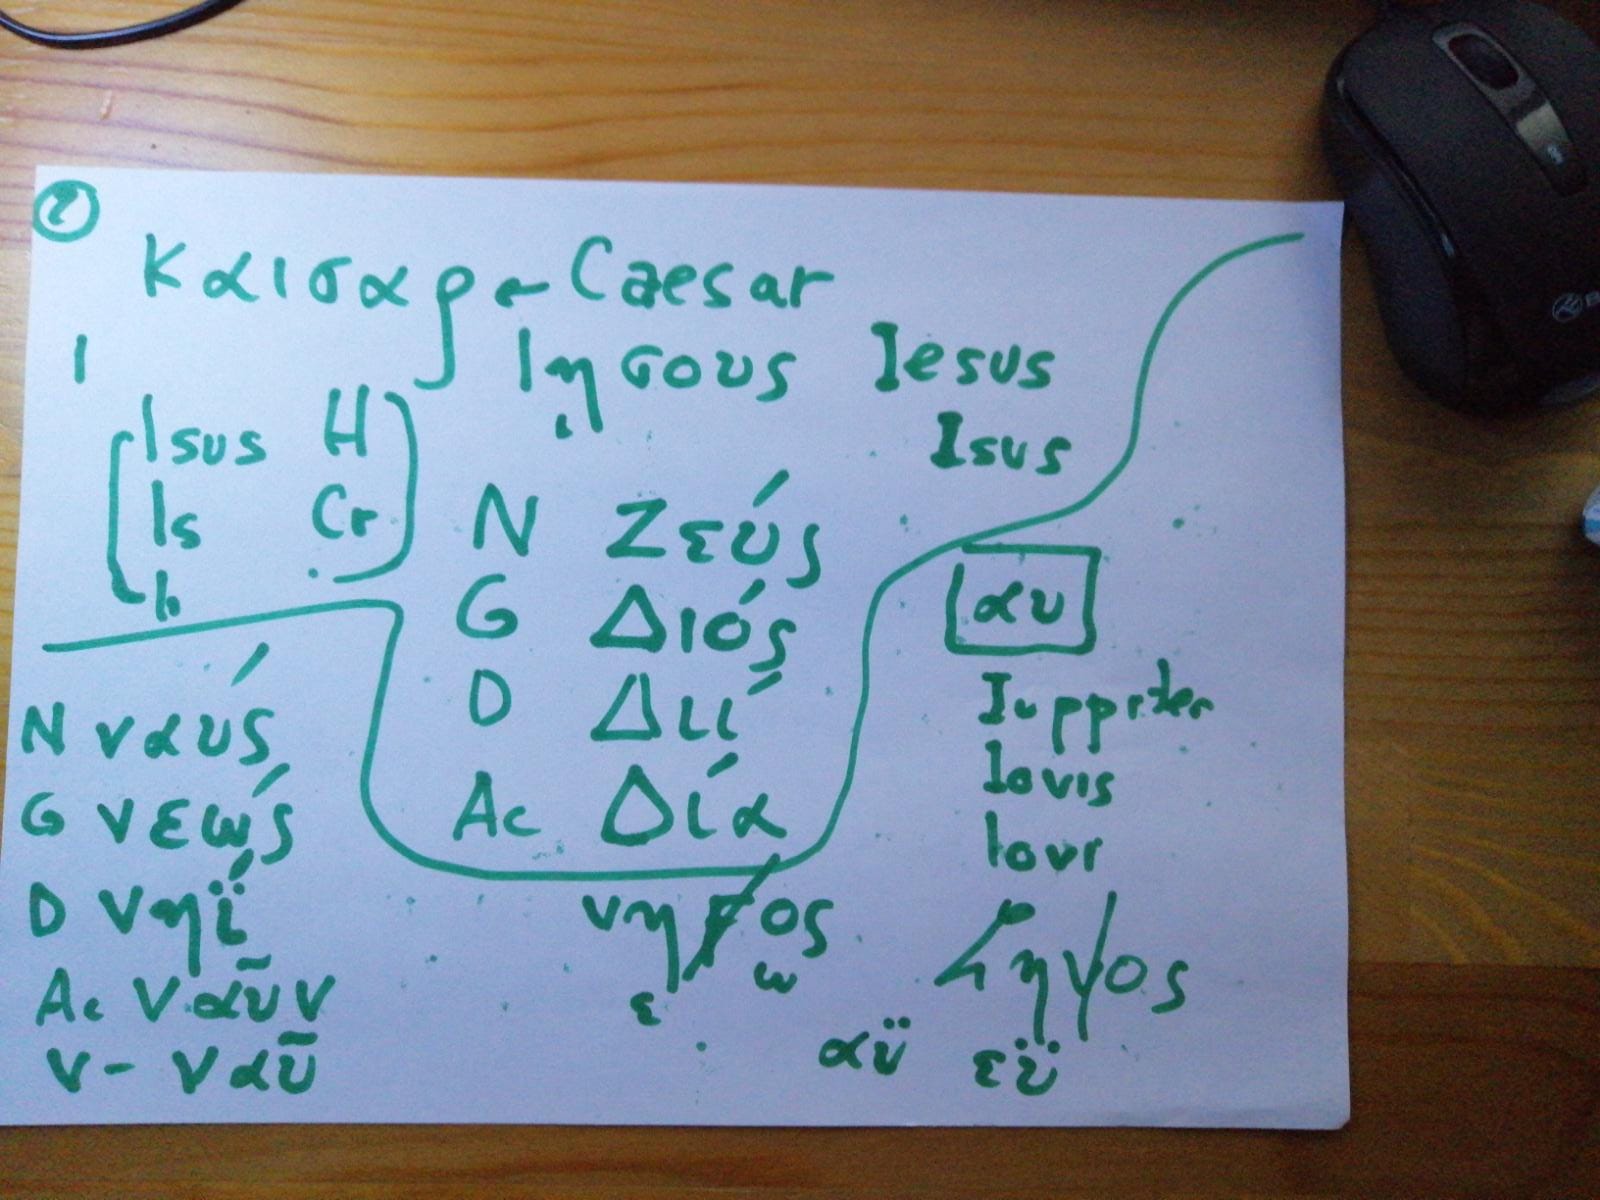 2
Καισαρ ← Caesar
Ι Ιησους Iesus
ι Isus
Isus H
Is Cr
N Ζεύς
G Διός
D Διί
Ac Δία
αυ
Iuppiter
Iovis
Iovi
N ναύς
G νεώς
D νηΐ
Ac ναῦν
V - ναῦ
νηϝος
ε ω
Ζηνος
αϋ εϋ